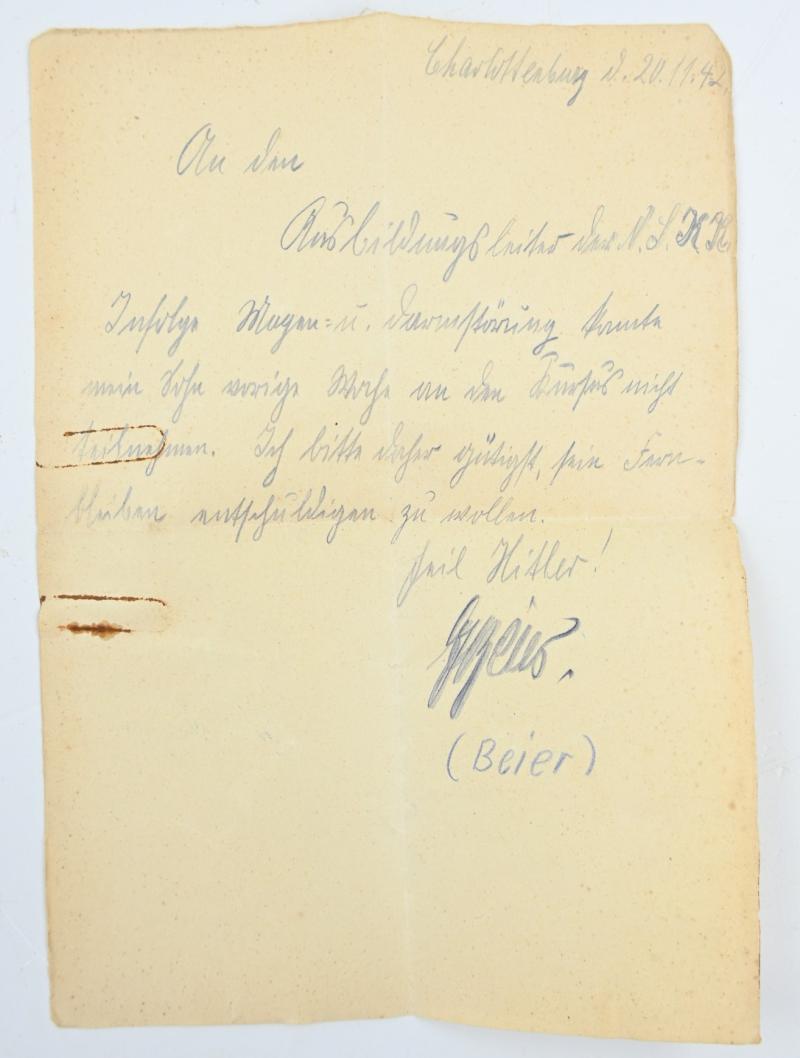 Charlottenburg d. 20.11.42.
An den
Ausbildungsleiter der N.S.K.K.
Infolge Magen= u. Darmstörung konnte
mein Sohn vorige Woche an den Kursus nicht
teilnehmen. Ich bitte daher gütigst, sein Fern-
bleiben entschuldigen zu wollen.
Heil Hitler!
(Beier)